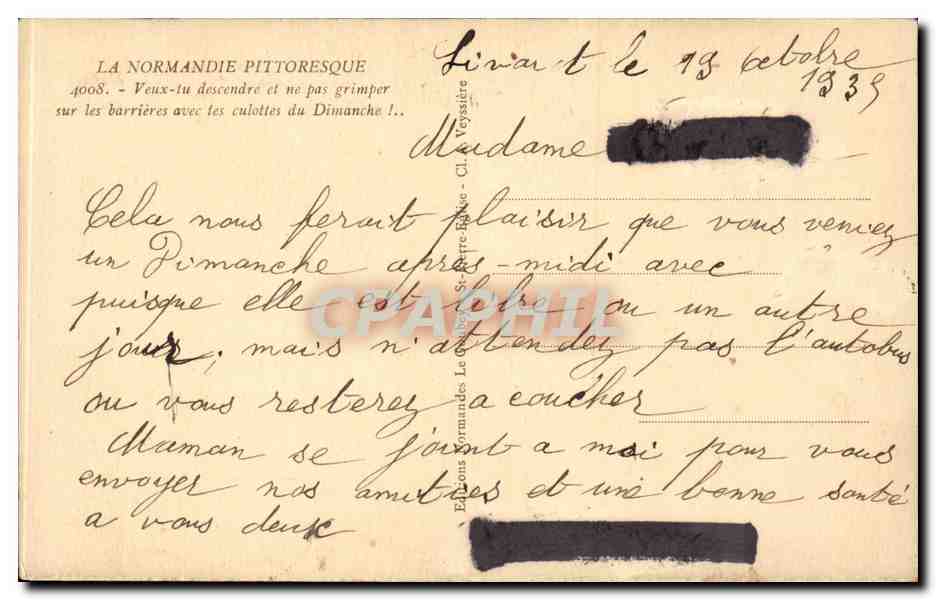 LA NORMANDIE PITTORESQUE
4008. - Veux-tu descendre et ne pas grimper
sur les barrières avec tes culottes du Dimanche !..
Livarot le 19 Octobre
1935
Madame
Cela nous ferait plaisir que vous veniez
un Dimanche après-midi avec
puisque elle est libre ou un autre
jour, mais n'attendez pas l'autobus
ou vous resterez a coucher
Maman se joint a moi pour vous
envoyer nos amitiés et une bonne santé
a vous deux
Editions Normandes Le St-Pierre-Eglise - Cl. Veyssière
CPAPHIL